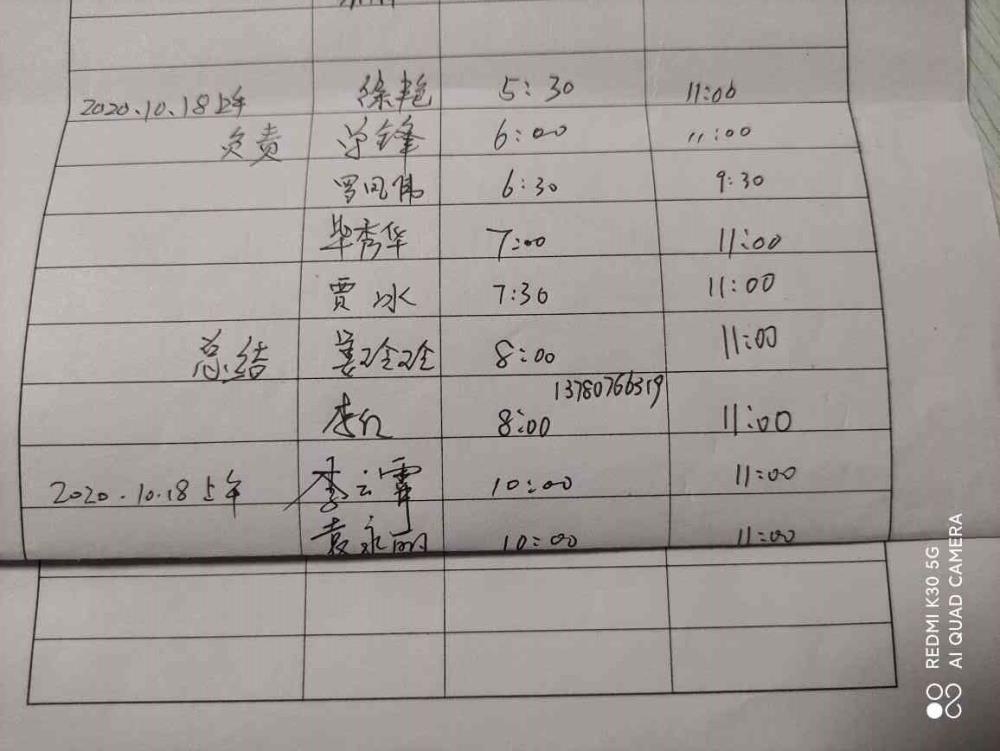 2020.10.18上午 徐艳 5:30 11:00
负责 单锋 6:00 11:00
罗凤伟 6:30 9:30
毕秀华 7:00 11:00
贾冰 7:30 11:00
总结 姜玲玲 8:00 11:00
13780766319
李红 8:00 11:00
2020.10.18上午 李云霞 10:00 11:00
袁永丽 10:00 11:00
REDMI K30 5G
AI QUAD CAMERA